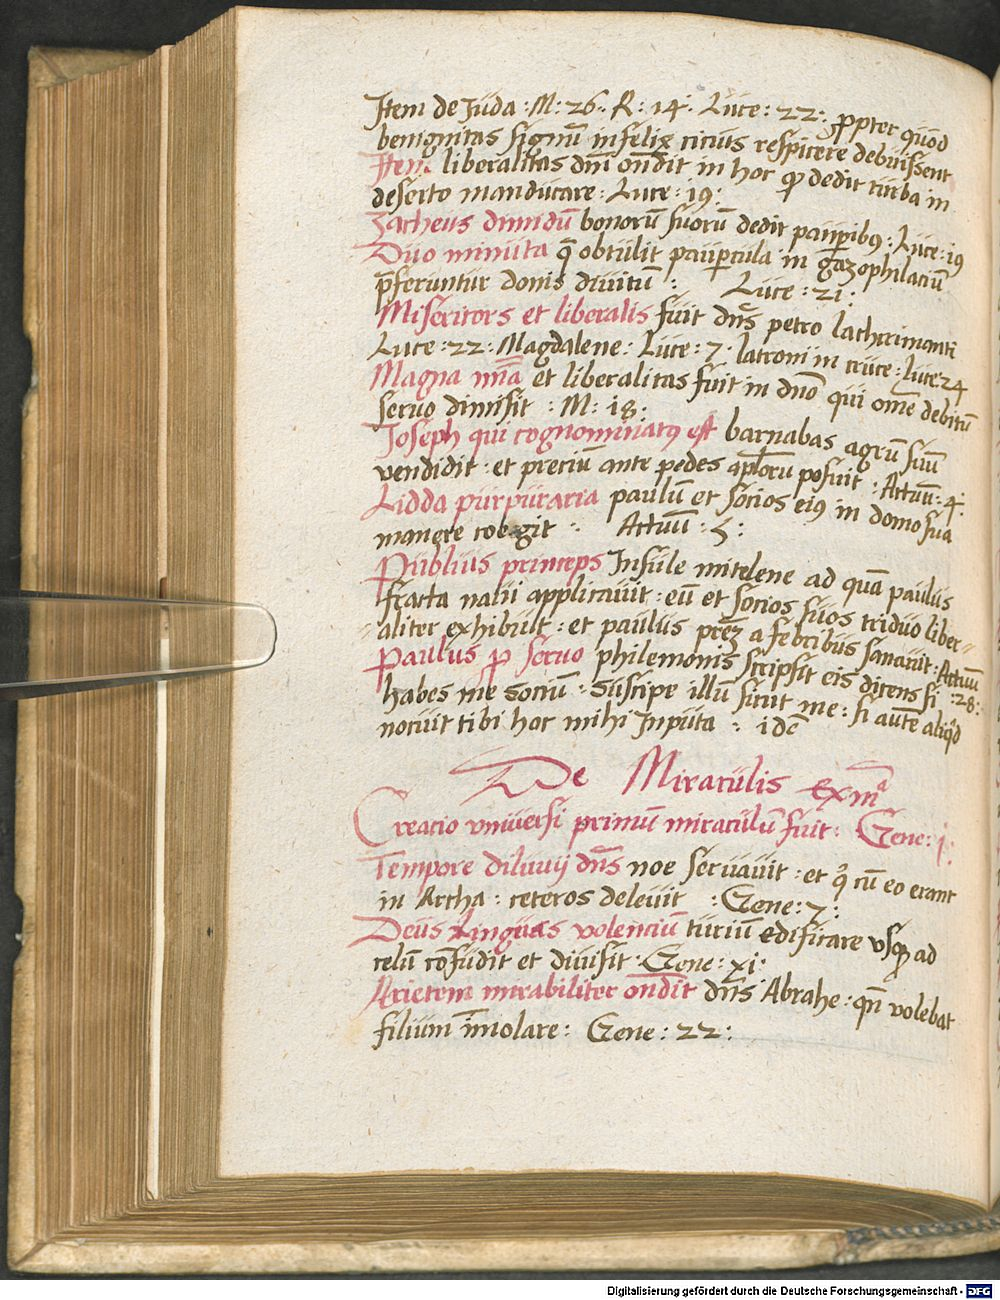 Item de Juda : M: 26. R: 14: Luce: 22: ꝓpter quod
benignitas signū infelix
respicere debuissent
Item liberalitas dñi oñdit in hoc qꝫ dedit turba in
deserto manducare: Luce: 19:
Zacheus dimidiū bonorū suorū dedit paupibꝰ: Luce: 19
Duo minuta q̄ obtulit paupcula in gazophilaciū
p̄feruntur donis diuitū : Luce: 21:
Misericors et liberalis fuit dñs petro lachrimanti
Luce: 22: Magdalene: Luce: 7. latroni in cruce: luce 24
Magna mīa et liberalitas fuit in dño qui om̄e debitū
seruo dimisit : M: 18:
Joseph qui cognominatꝰ est barnabas agrū suū
vendidit: et preciū ante pedes aplōru posuit: Actuū: 4:
Lidda purpuraria paulū et socios eiꝰ in domo sua
manere coegit : Actuū: 5:
Publius princeps Insule mitelene ad quā paulus
fracta naui applicauit: eū et socios suos triduo liber=
aliter exhibuit: et paulus pr̄ez a febribus sanauit: Actuū
:28:
Paulus ꝑ seruo philemonis scripsit eis dicens si
habes me sociū: Suscipe illū sicut me: si autē aliqd
nocuit tibi hoc mihi Inputa : idē
De Miraculis Exma
Creacio vniuersi primū miraculū fuit: Gene: j:
Tempore diluuij dñs noe seruauit: et q̄ cū eo erant
in Archa: ceteros deleuit : Gene: 7:
Deus Linguas volenciū turiū edificare vsqꝫ ad
celū cōfudit et diuisit: Gene: xi:
Arietem mirabiliter oñdit dñs Abrahe: qn̄ volebat
filium īmolare: Gene: 22:
Digitalisierung gefördert durch die Deutsche Forschungsgemeinschaft - DFG